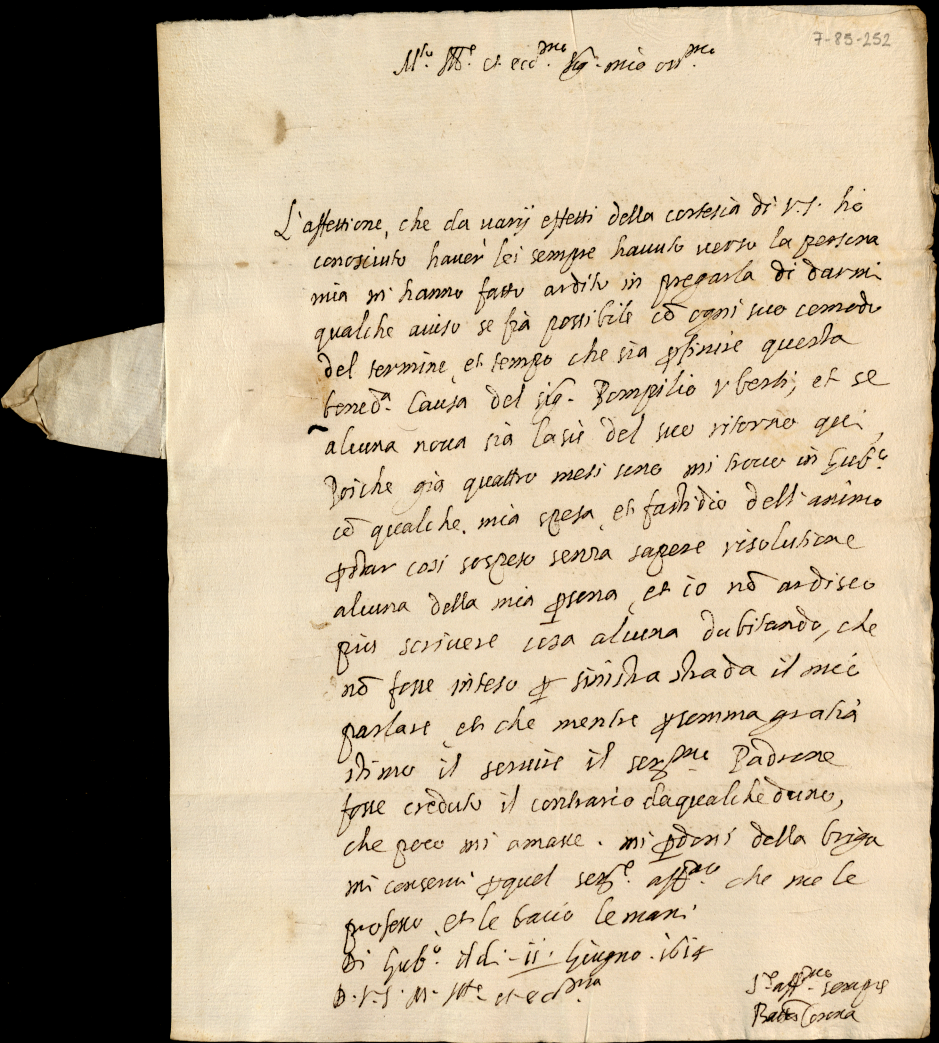 7-85-252
M.to Ill.re et ecc.mo Sig.r mio oss.mo
L'affettione, che da varij effetti della cortesia di V.S. ho
conosciuto haver lei sempre havuto verso la persona
mia mi hanno fatto ardito in pregarla di darmi
qualche aviso se fia possibile cō ogni suo comodo
del termine, et tempo che sia p finire questa
bened.a Causa del sig.r Pompilio Uberti; et se
alcuna nova sia lasù del suo ritorno qui,
Poiche già quattro mesi sono mi trovo in Gub.o
cō qualche mia spesa, et fastidio dell'animo
p star così sospeso senza sapere risolutione
alcuna della mia psona, et io nō ardisco
più scrivere cosa alcuna dubitando, che
nō fosse inteso p sinistra strada il mio
parlare, et che mentre p somma gratia
stimo il servire il ser.mo Padrone
fosse creduto il contrario da qualcheduno,
che poco mi amasse. mi pdoni della briga
mi conservi p quel ser.e aff.mo che me le
professo et le bacio le mani
Di Gub.o il dì 11 Giugno 1614
D.V.S. M. Ill.re et ecc.ma
S.re aff.mo sempre